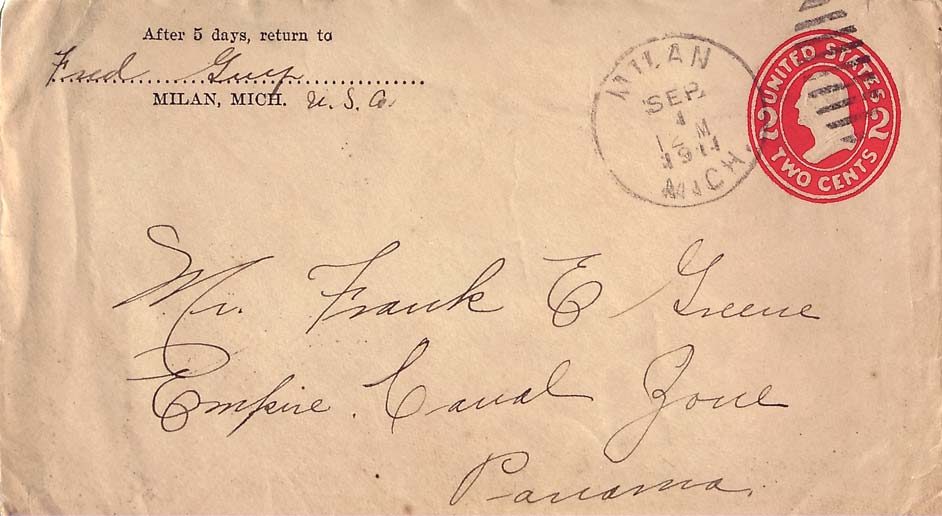 After 5 days, return to
Fred
MILAN, MICH. U. S. A.
MILAN
SEP
1
12 M
1911
MICH.
UNITED STATES
2 2
TWO CENTS
Mr. Frank E Greene
Empire. Canal Zone
Panama.